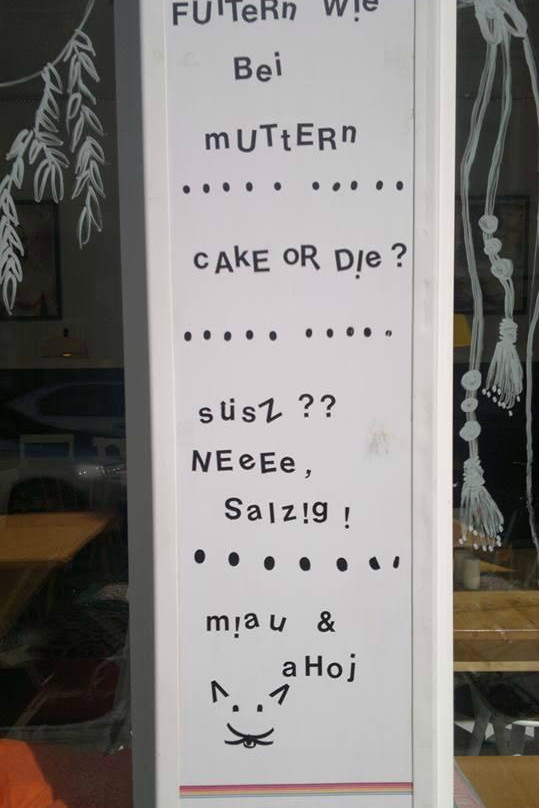 FUTTeRn W!e
Bei
mUTtERn
cAkE OR D!e ?
süsZ ??
NEeEe,
Salz!g !
m!au &
aHoj